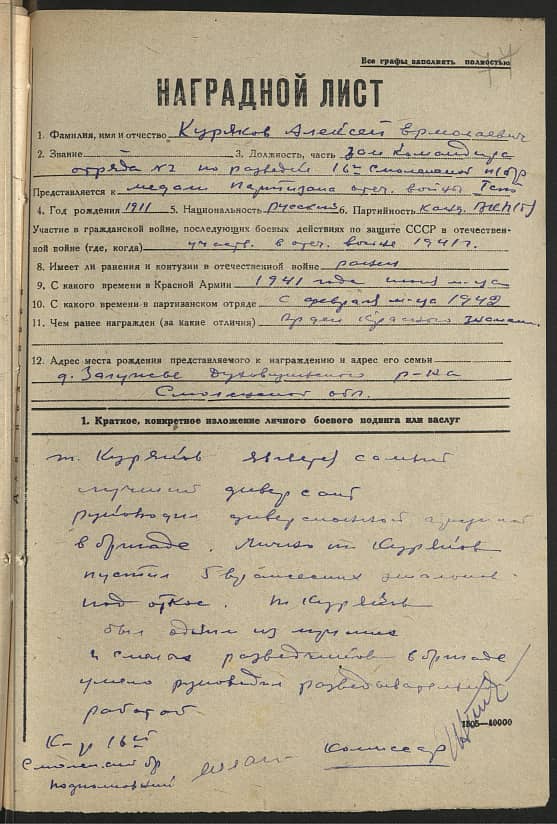 Все графы заполнять полностью
НАГРАДНОЙ ЛИСТ
1. Фамилия, имя и отчество Куряков Алексей Ермолаевич
2. Звание 3. Должность, часть Зам Командира
отряда №2 по разведке 16й Смоленской п/бр
Представляется к медали Партизана отеч. войны Iст
4. Год рождения 1911 5. Национальность русский 6. Партийность канд. ВКП(б)
Участие в гражданской войне, последующих боевых действиях по защите СССР в отечествен-
ной войне (где, когда) участв. в отеч. войне 1941 г.
8. Имеет ли ранения и контузии в отечественной войне ранен
9. С какого времени в Красной Армии 1941 года июня м-ца
10. С какого времени в партизанском отряде с февраля м-ца 1942
11. Чем ранее награжден (за какие отличия) Орден Красного Знамени
12. Адрес места рождения представляемого к награждению и адрес его семьи
д. Духовщинского р-на
Смоленской обл.
1. Краткое, конкретное изложение личного боевого подвига или заслуг
т. Куряков самый
лучший диверсант
руководил диверсионной группой
в бригаде. Лично т. Куряков
пустил 5 вражеских эшелонов
под откос. т. Куряков
был одним из лучших
и смелых разведчиков в бригаде
умело руководил разведывательной
работой
1805—10000
К-р 16й
Смоленской бр
Комиссар